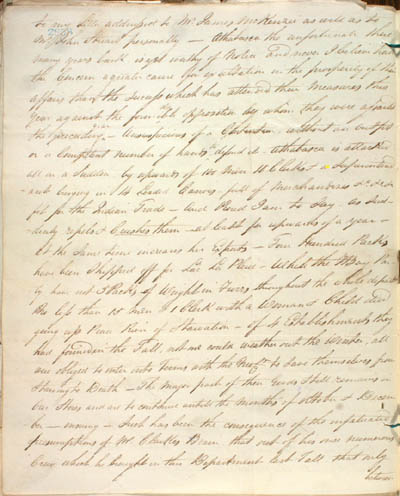 to my letter addressed to Mr. James McKenzie as well as to
Mr. John Stuart personally — Athabasca the unfortunate these
many years back is yet worthy of Notice and never I believe had
the Concern a greater cause for exultation in the prosperity of their
affairs than the success which has attended their Measures this
year against the formidable opposition by whom they were assailed
the preceding — Unsuspicious of a Governor without an outfit
or a Competent number of hands to defend it Athabasca is attacked
all on a sudden by upwards of 100 Men 11 Clerks & a Superintend
-ant burying in his loaded Canoes full of Merchandise &c &c
fit for the Indian Trade — And Proud I am to Say — as sud-
denly repels & Crushes them — at least for upwards of a year —
At the same time increases her Exports — Four Hundred Packs
have been Shipped off for Lac La Pluie — Whilst the H Bay
have not 5 Packs of Weight in Furs throughout the whole depart
No less than 15 Men & 1 Clerk with a Woman & Child
Peace River of Starvation — of 4 Establishments they
had formed in the Fall, not one could weather out the Winter, all
are obliged to enter into terms with the to save themselves from
Starving to Death — The Major part of their Goods Still remains in
Our Stores and are to continue untill the months of October & Decem
ber — ensuing — Such has been the consequences of the
presumptions of Mr. Clarke that out of his once numerous
Crew which he brought in this Department last Fall that only
between